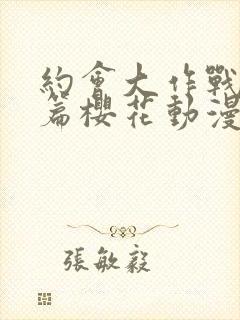 約會大作戰
篇櫻花動漫
張敏毅